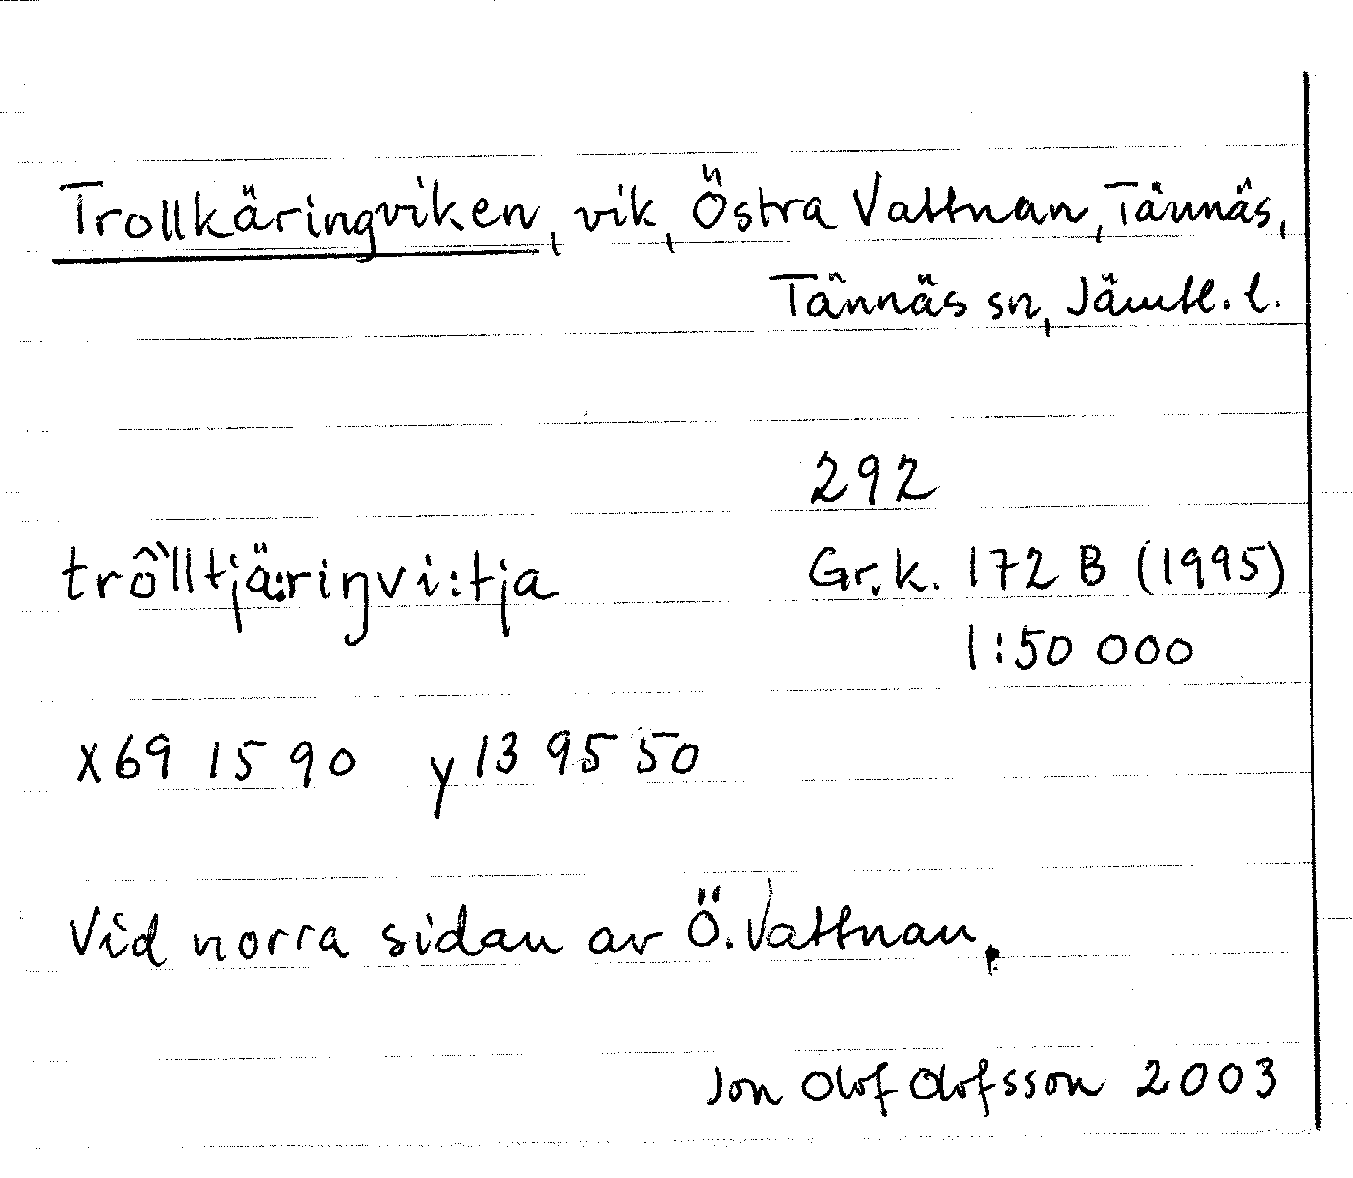 Trollkäringviken, vik, Östra Vattnan, Tännäs,
Tännäs sn, Jämtl. l.
292
trô`lltjä:riŋvi:tja Gr.k. 172 B (1995)
1:50 000
X69 15 90 y 13 95 50
Vid norra sidan av Ö. Vattnan.
Jon Olof Olofsson 2003